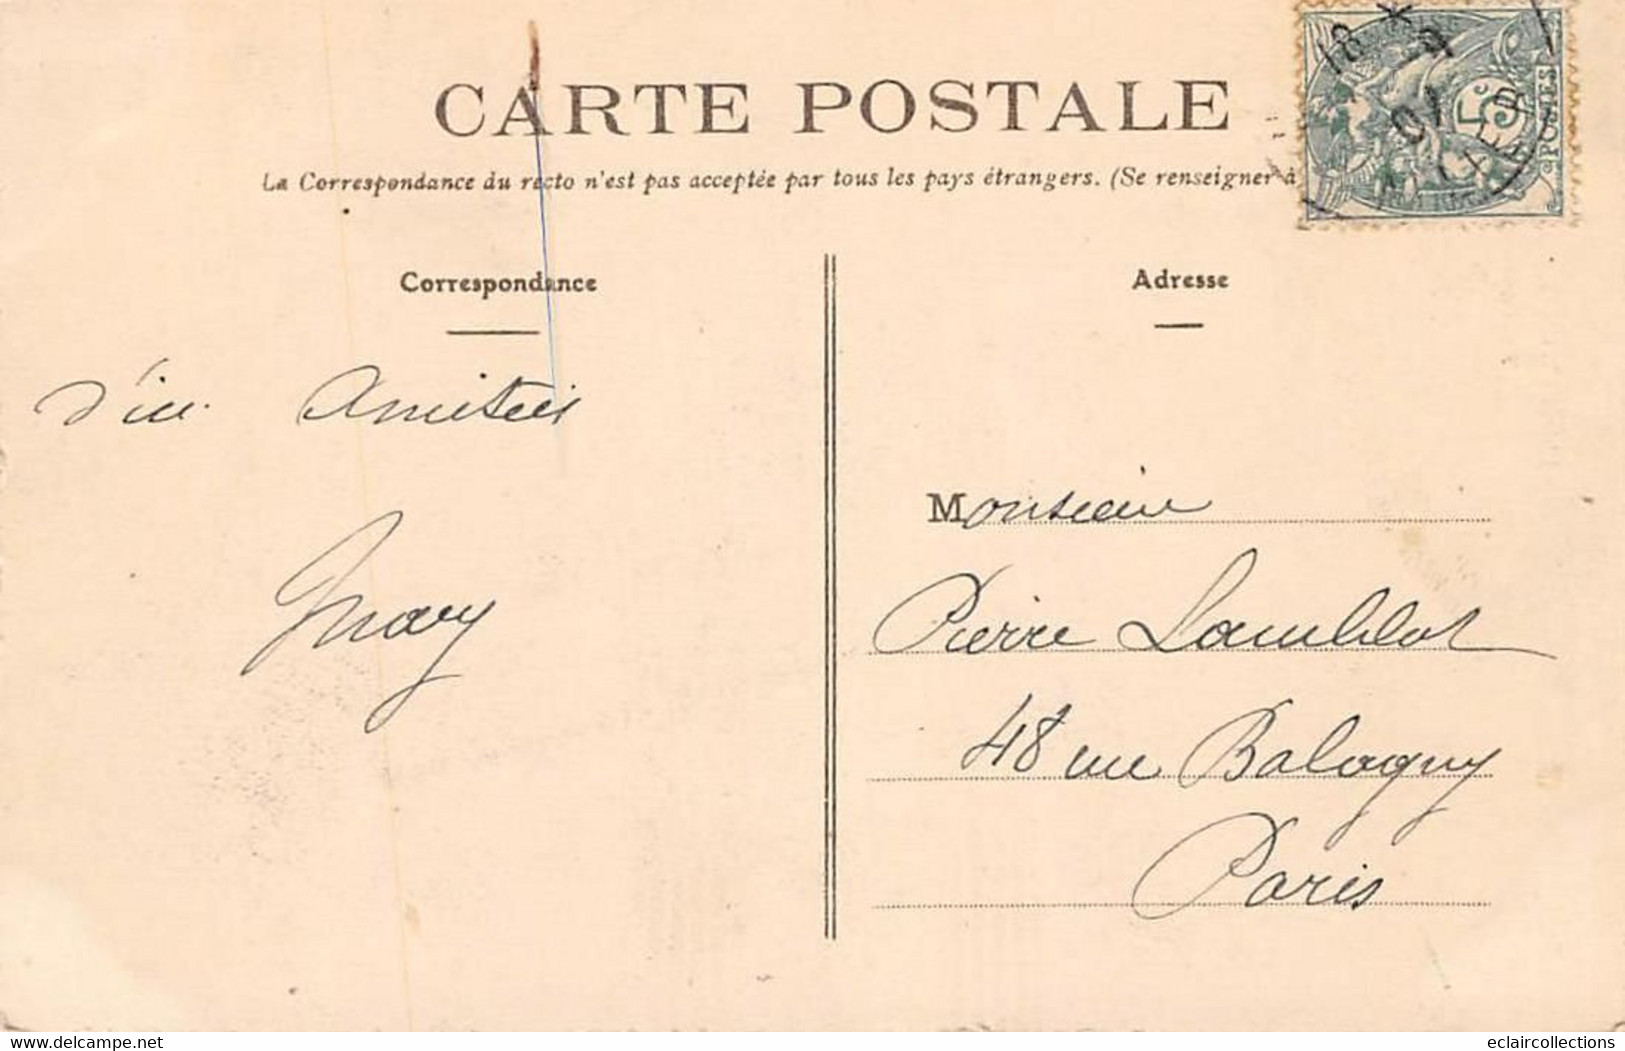 CARTE POSTALE
La Correspondance du recto n'est pas acceptée par tous les pays étrangers. (Se renseigner à
Correspondance
Adresse
d'ici Amitiés
Mary
Monsieur
Pierre Lamblot
48 rue Balagny
Paris
18 *
07
5c
POSTES
delcampe.net
eclaircollections